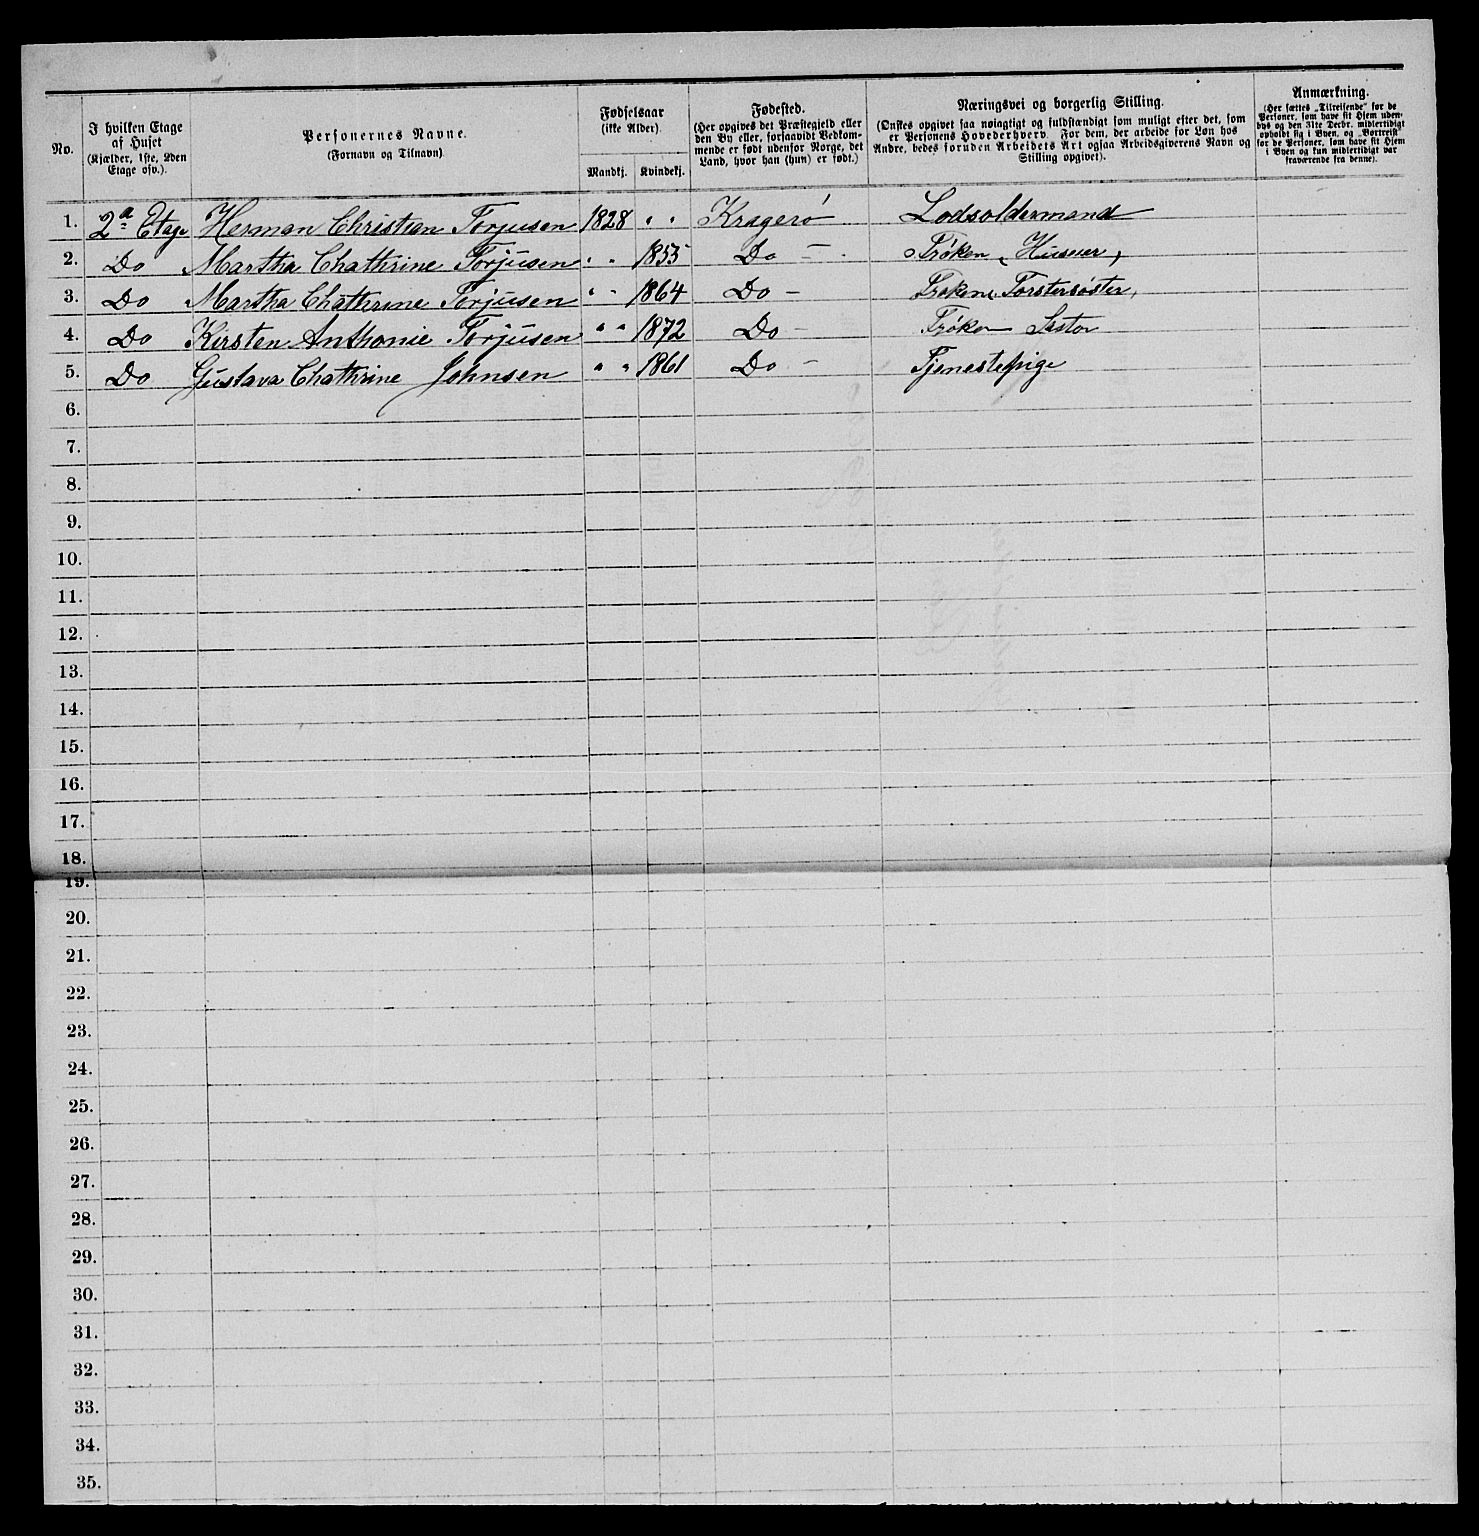 No.
I hvilken Etage
af Huset
(Kjælder, 1ste, 2den
Etage osv.).
Personernes Navne.
(Fornavn og Tilnavn)
Fødselsaar
(ikke Alder)
Mandkj.
Kvindekj.
Fødested.
(Her opgives det Præstegjeld eller
den By eller, forsaavidt Vedkom-
mende er født udenfor Norge, det
Land, hvor han (hun) er født.)
Næringsvei og borgerlig Stilling.
(Ønskes opgivet saa nøiagtigt og fuldstændigt som muligt efter det, som
er Personens Hovederhverv. For dem, der arbeide for Løn hos
Andre, bedes foruden Arbeidets Art ogsaa Arbeidsgiverens Navn og
Stilling opgivet).
Anmærkning.
(Her sættes „Tilreisende" for de
Personer, som have sit Hjem uden-
bys og den 31te Decbr. midlertidigt
opholdt sig i Byen, og „Bortreist"
for de Personer, som have sit Hjem
i Byen og kun midlertidigt var
fraværende fra denne).
1. 2a Etage Herman Christian Torjusen 1828 " " Kragerø Lodsoldermand
2. Do Martha Chathrine Torjusen " " 1855 Do — Frøken,
3. Do Martha Chathrine Torjusen " " 1864 Do —
4. Do Kirsten Anthonie Torjusen " " 1872 Do — Frøken
5. Do Gustava Chathrine Johnsen " " 1861 Do — Tjenestepige
6.
7.
8.
9.
10.
11.
12.
13.
14.
15.
16.
17.
18.
19.
20.
21.
22.
23.
24.
25.
26.
27.
28.
29.
30.
31.
32.
33.
34.
35.